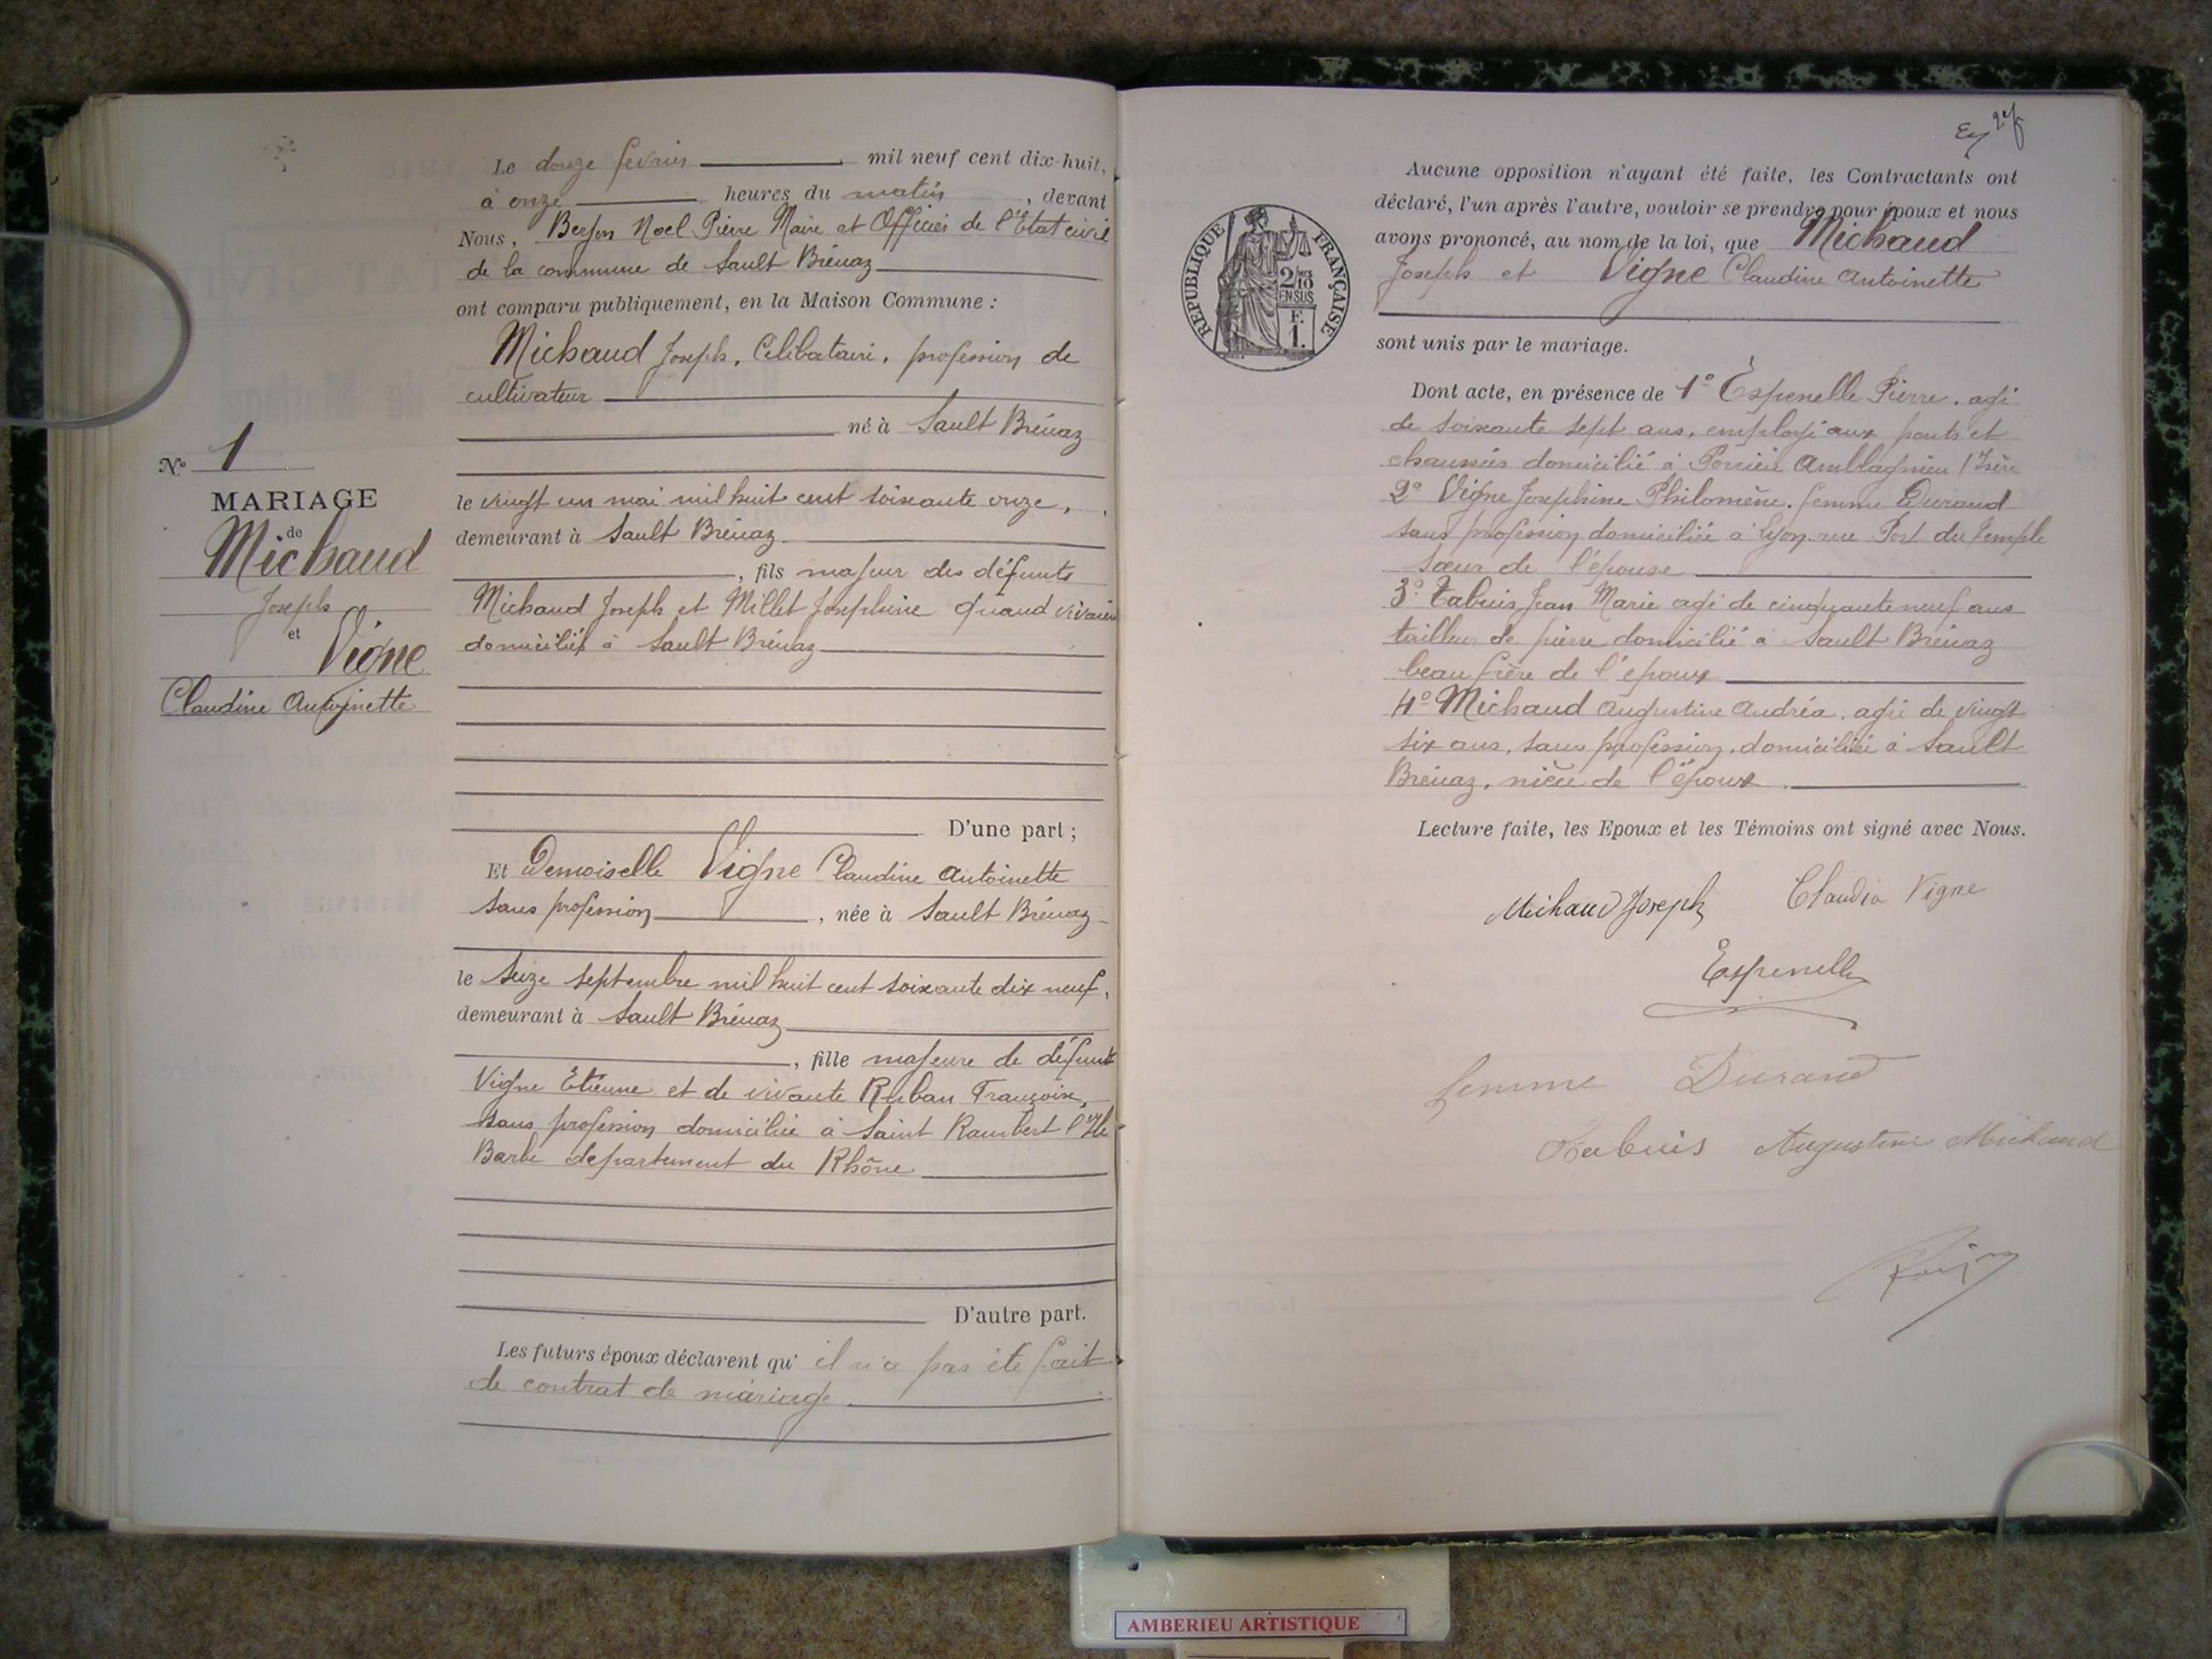 Le douze fevrier mil neuf cent dix-huit,
à onze heures du matin, devant
Nous, Noel Pierre Maire et Officier de l'État civil
de la commune de Sault Brénaz
ont comparu publiquement, en la Maison Commune :
Michaud Joseph, Célibataire, profession de
cultivateur
né à Sault Brénaz
le vingt un mai mil huit cent soixante onze,
demeurant à Sault Brénaz
, fils majeur des défunts
Michaud Joseph et Millet Joséphine quand vivaient
domiciliés à Sault Brénaz
D'une part ;
Et Demoiselle Vigne Claudine Antoinette
sans profession, née à Sault Brénaz
le seize septembre mil huit cent soixante dix neuf,
demeurant à Sault Brénaz
, fille majeure de défunt
Vigne Étienne et de vivante Ruban Françoise,
sans profession domiciliée à Saint Rambert l'Ile
Barbe département du Rhône
D'autre part.
Les futurs époux déclarent qu' il n'a pas été fait
de contrat de mariage
N° 1
MARIAGE
de
Michaud
Joseph
et
Vigne
Claudine Antoinette
Aucune opposition n'ayant été faite, les Contractants ont
déclaré, l'un après l'autre, vouloir se prendre pour époux et nous
avons prononcé, au nom de la loi, que Michaud
Joseph et Vigne Claudine Antoinette
sont unis par le mariage.
RÉPUBLIQUE FRANÇAISE
2/10
EN SUS
F.
1.
Dont acte, en présence de 1° Espenelle Pierre, agé
de soixante sept ans, employé aux ponts et
chaussées domicilié à Amblagnieu (Isère
2° Vigne Joséphine Philomène, femme Durand
sans profession domiciliée à Lyon, rue Port du Temple
sœur de l'épouse
3° Tabuis Jean Marie agé de cinquante neuf ans
tailleur de pierre domicilié à Sault Brénaz
beau frère de l'époux
4° Michaud Augustine Andréa, agée de vingt
six ans, sans profession, domiciliée à Sault
Brénaz, nièce de l'époux
Lecture faite, les Epoux et les Témoins ont signé avec Nous.
Michaud Joseph
Claudia Vigne
Espenelle
femme Durand
Tabuis
Augustine Michaud
AMBERIEU ARTISTIQUE